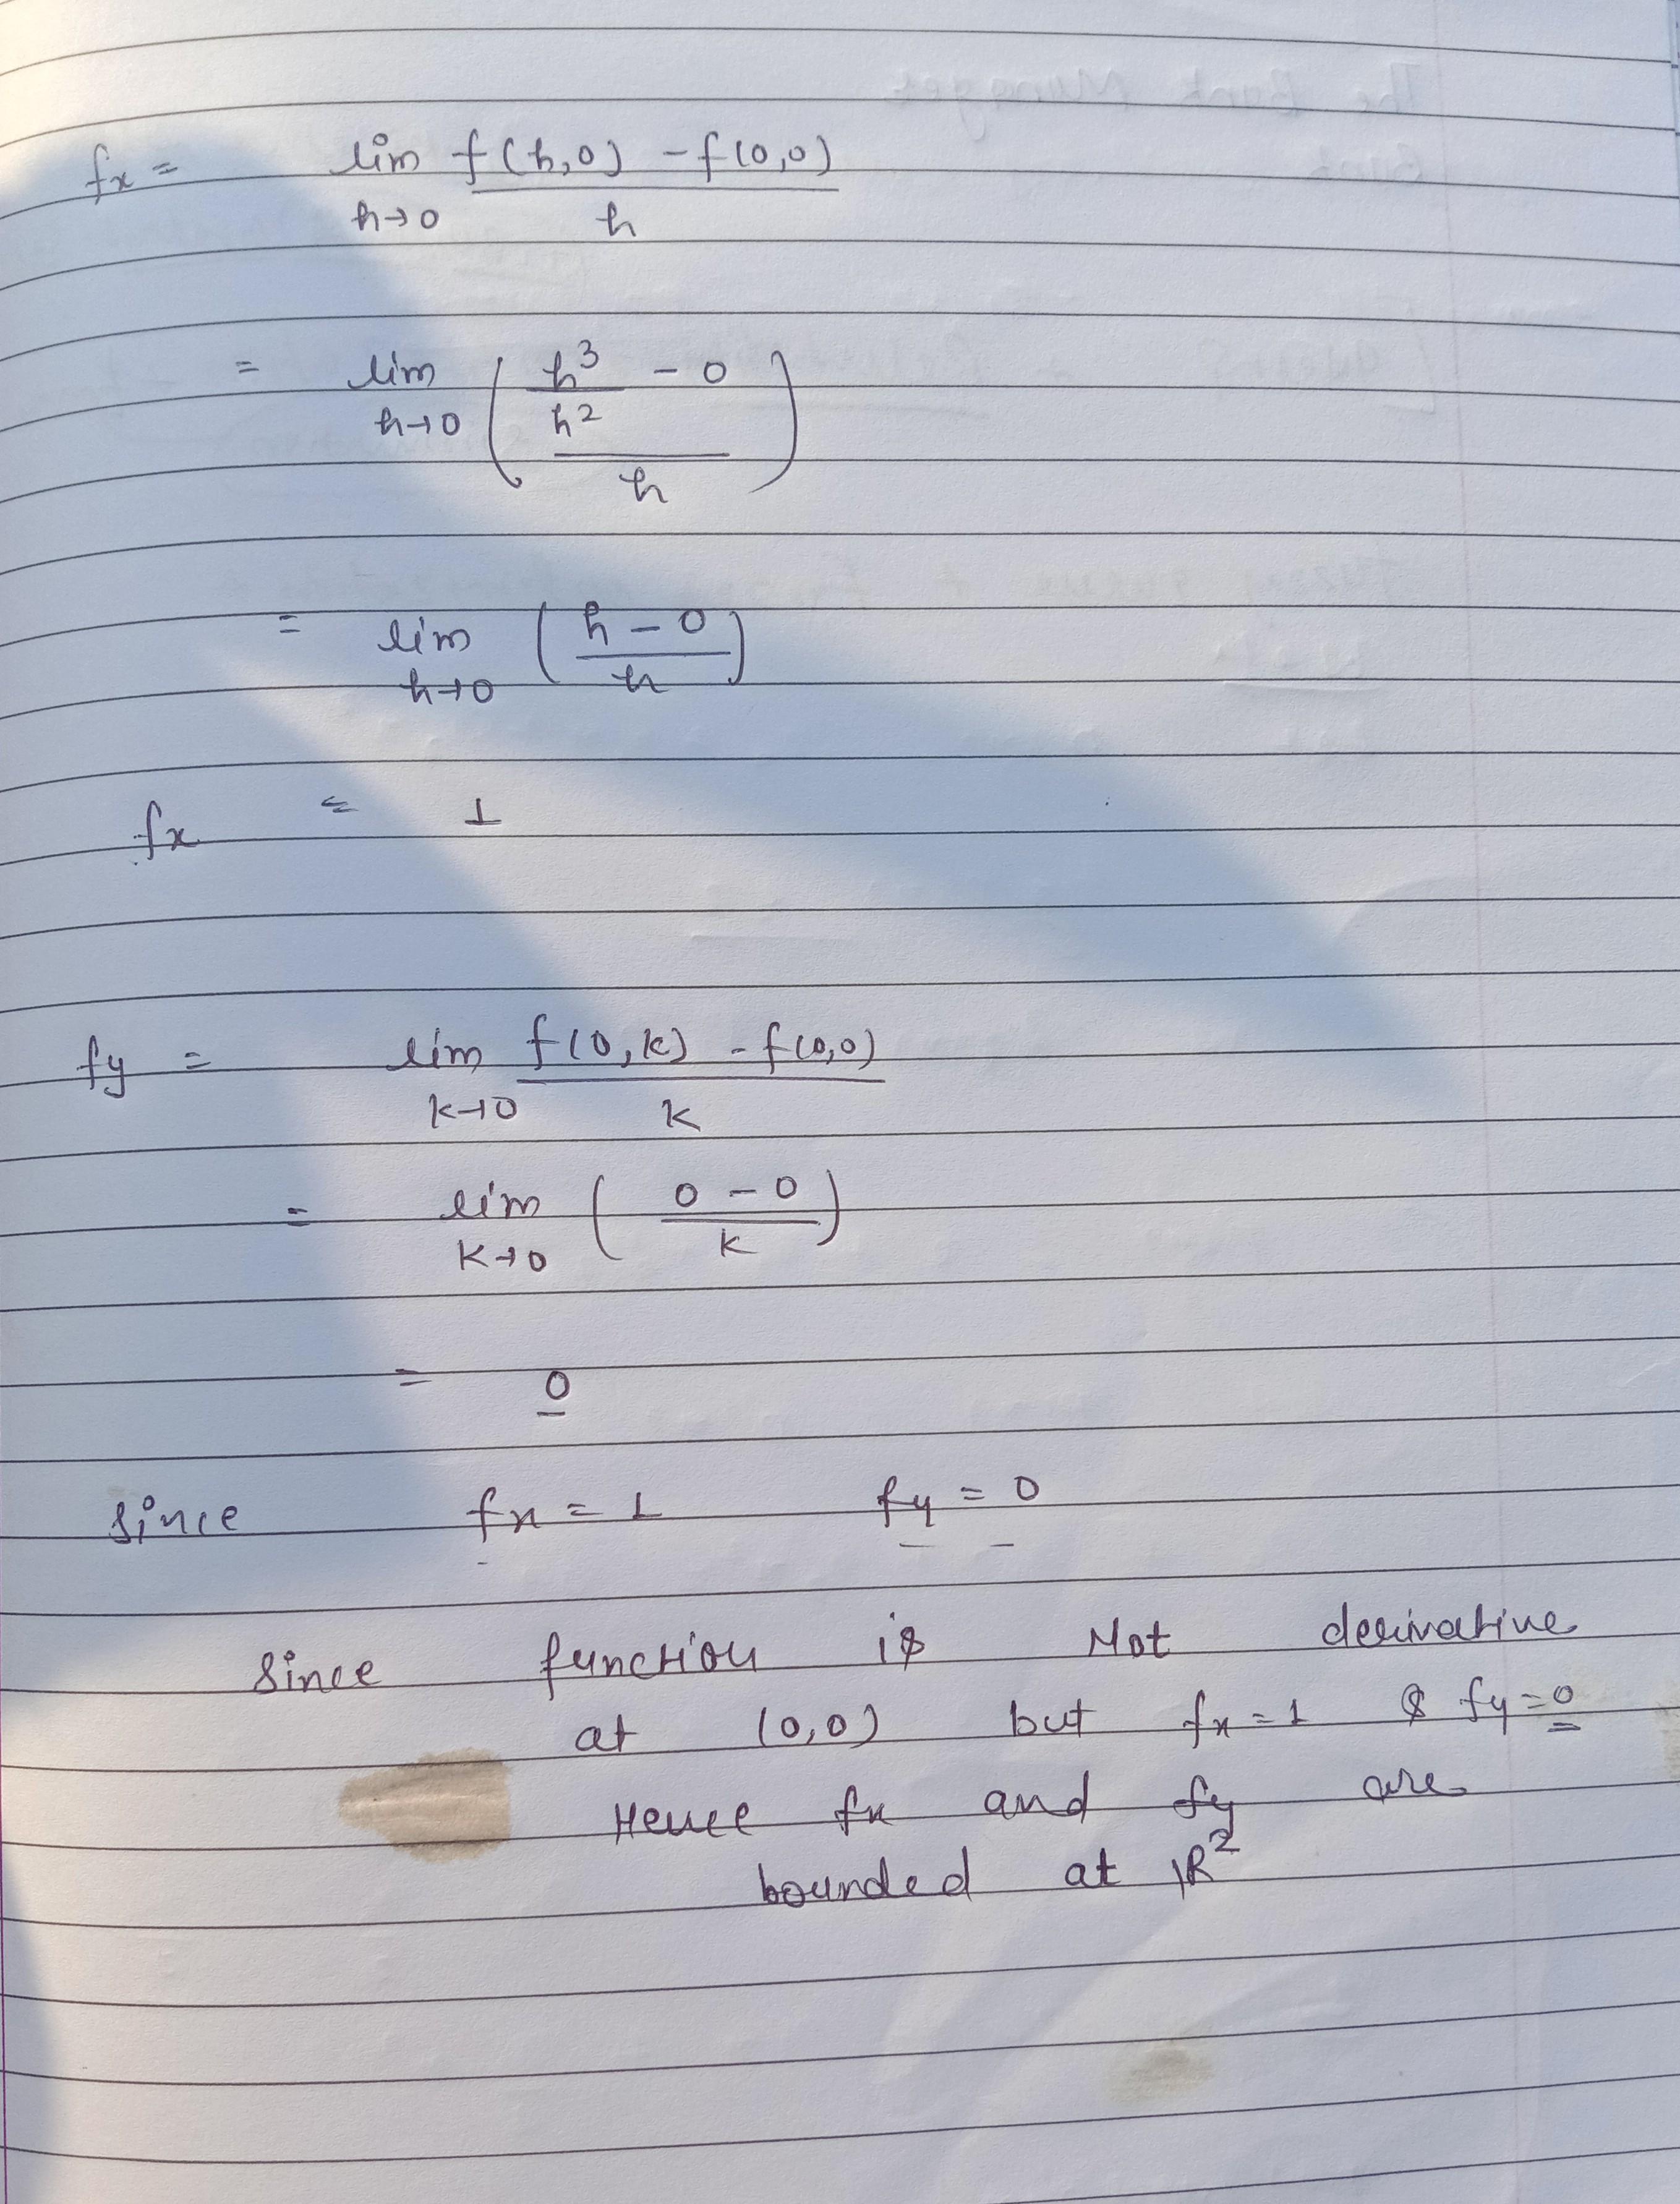 fx = lim f(h,0) - f(0,0)
h→0 h
= lim ( h³ - 0 )
h→0 h²
h
= lim ( h - 0 )
h→0 h
fx = 1
fy = lim f(0,k) - f(0,0)
k→0 k
= lim ( 0 - 0 )
k→0 k
= 0
Since fx = 1 fy = 0
Since function is Not derivative
at (0,0) but fx = 1 & fy = 0
Hence fx and fy are
bounded at ℝ²